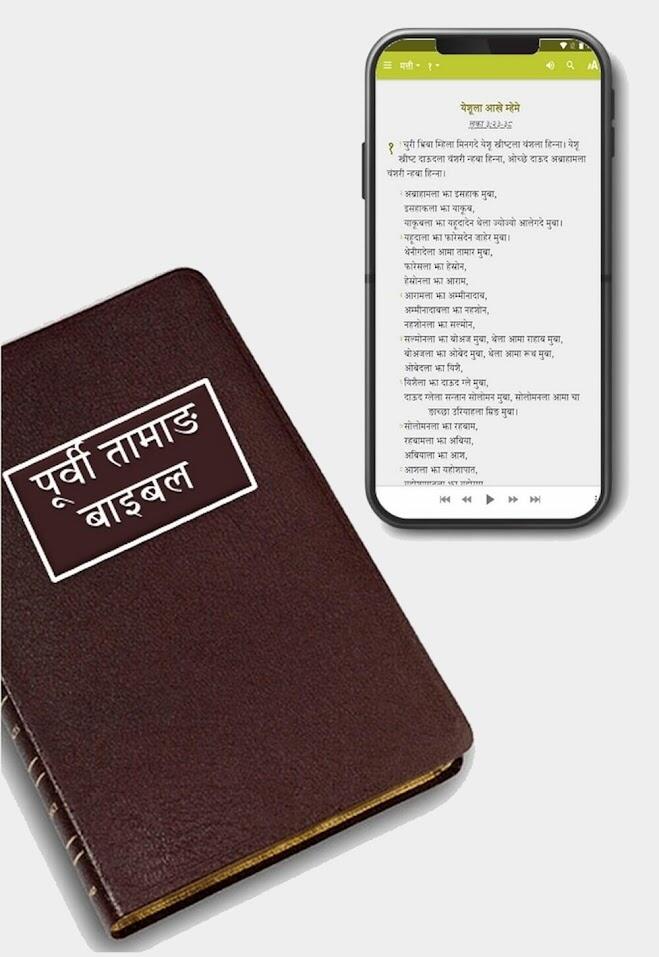 पूर्वी तामाङ
बाइबल
मत्ती १
येशूला आखे म्हेमे
लूका ३:२३-३८
१ चुरी भ्रिबा म्हिला मिनगदे येशू ख्रीष्टला वंशला हिन्ना। येशू
ख्रीष्ट दाऊदला वंशरी न्हबा हिन्ना, ओच्छे दाऊद अब्राहामला
वंशरी न्हबा हिन्ना।
अब्राहामला झा इसहाक मुबा,
इसहाकला झा याकूब,
याकूबला झा यहूदादेन थेला ज्योज्यो आलेगदे मुबा।
यहूदाला झा फारेसदेन जाहेर मुबा।
थेनीगदेला आमा तामार मुबा,
फारेसला झा हेस्रोन,
हेस्रोनला झा आराम,
आरामला झा अम्मीनादाब,
अम्मीनादाबला झा नहशोन,
नहशोनला झा सल्मोन,
सल्मोनला झा बोअज मुबा, थेला आमा राहाब मुबा,
बोअजला झा ओबेद मुबा, थेला आमा रूथ मुबा,
ओबेदला झा यिशै,
यिशैला झा दाऊद ग्ले मुबा,
दाऊद ग्लेला सन्तान सोलोमन मुबा, सोलोमनला आमा चा
ङाच्छा उरियाहला म्रिङ मुबा।
सोलोमनला झा रहबाम,
रहबामला झा अबिया,
अबियाला झा आशा,
आशाला झा यहोशापात,